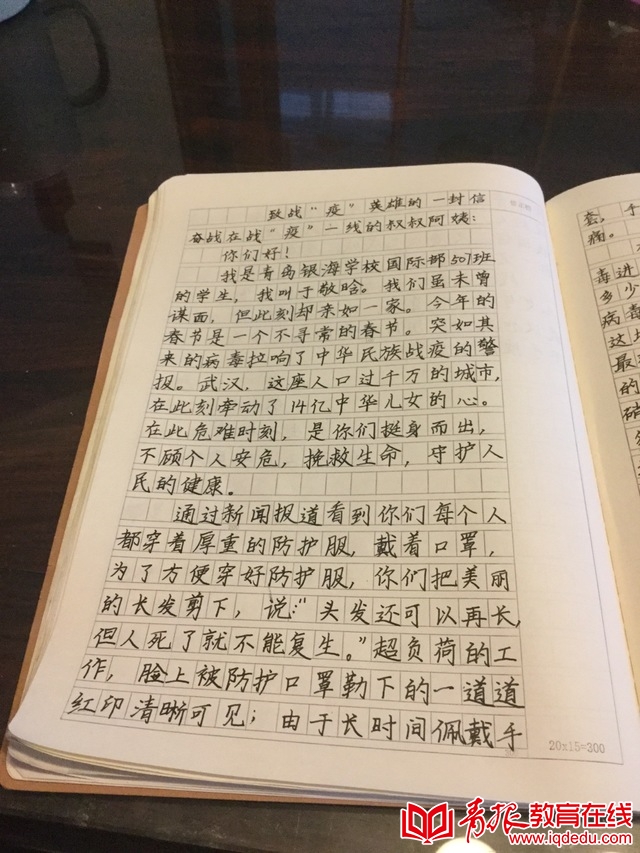 致战“疫”英雄的一封信
奋战在战“疫”一线的叔叔阿姨：
你们好！
我是青岛银海学校国际部507班
的学生，我叫于敬晗。我们虽未曾
谋面，但此刻却亲如一家。今年的
春节是一个不寻常的春节。突如其
来的病毒拉响了中华民族战疫的警
报。武汉，这座人口过千万的城市，
在此刻牵动了14亿中华儿女的心。
在此危难时刻，是你们挺身而出，
不顾个人安危，挽救生命，守护人
民的健康。
通过新闻报道看到你们每个人
都穿着厚重的防护服，戴着口罩，
为了方便穿好防护服，你们把美丽
的长发剪下，说：“头发还可以再长，
但人死了就不能复生。”超负荷的工
作，脸上被防护口罩勒下的一道道
红印清晰可见；由于长时间佩戴手
20x15=300
套，手
痛。
毒进
多少
病毒
这场
最
的
青报教育在线
www.iqdedu.com